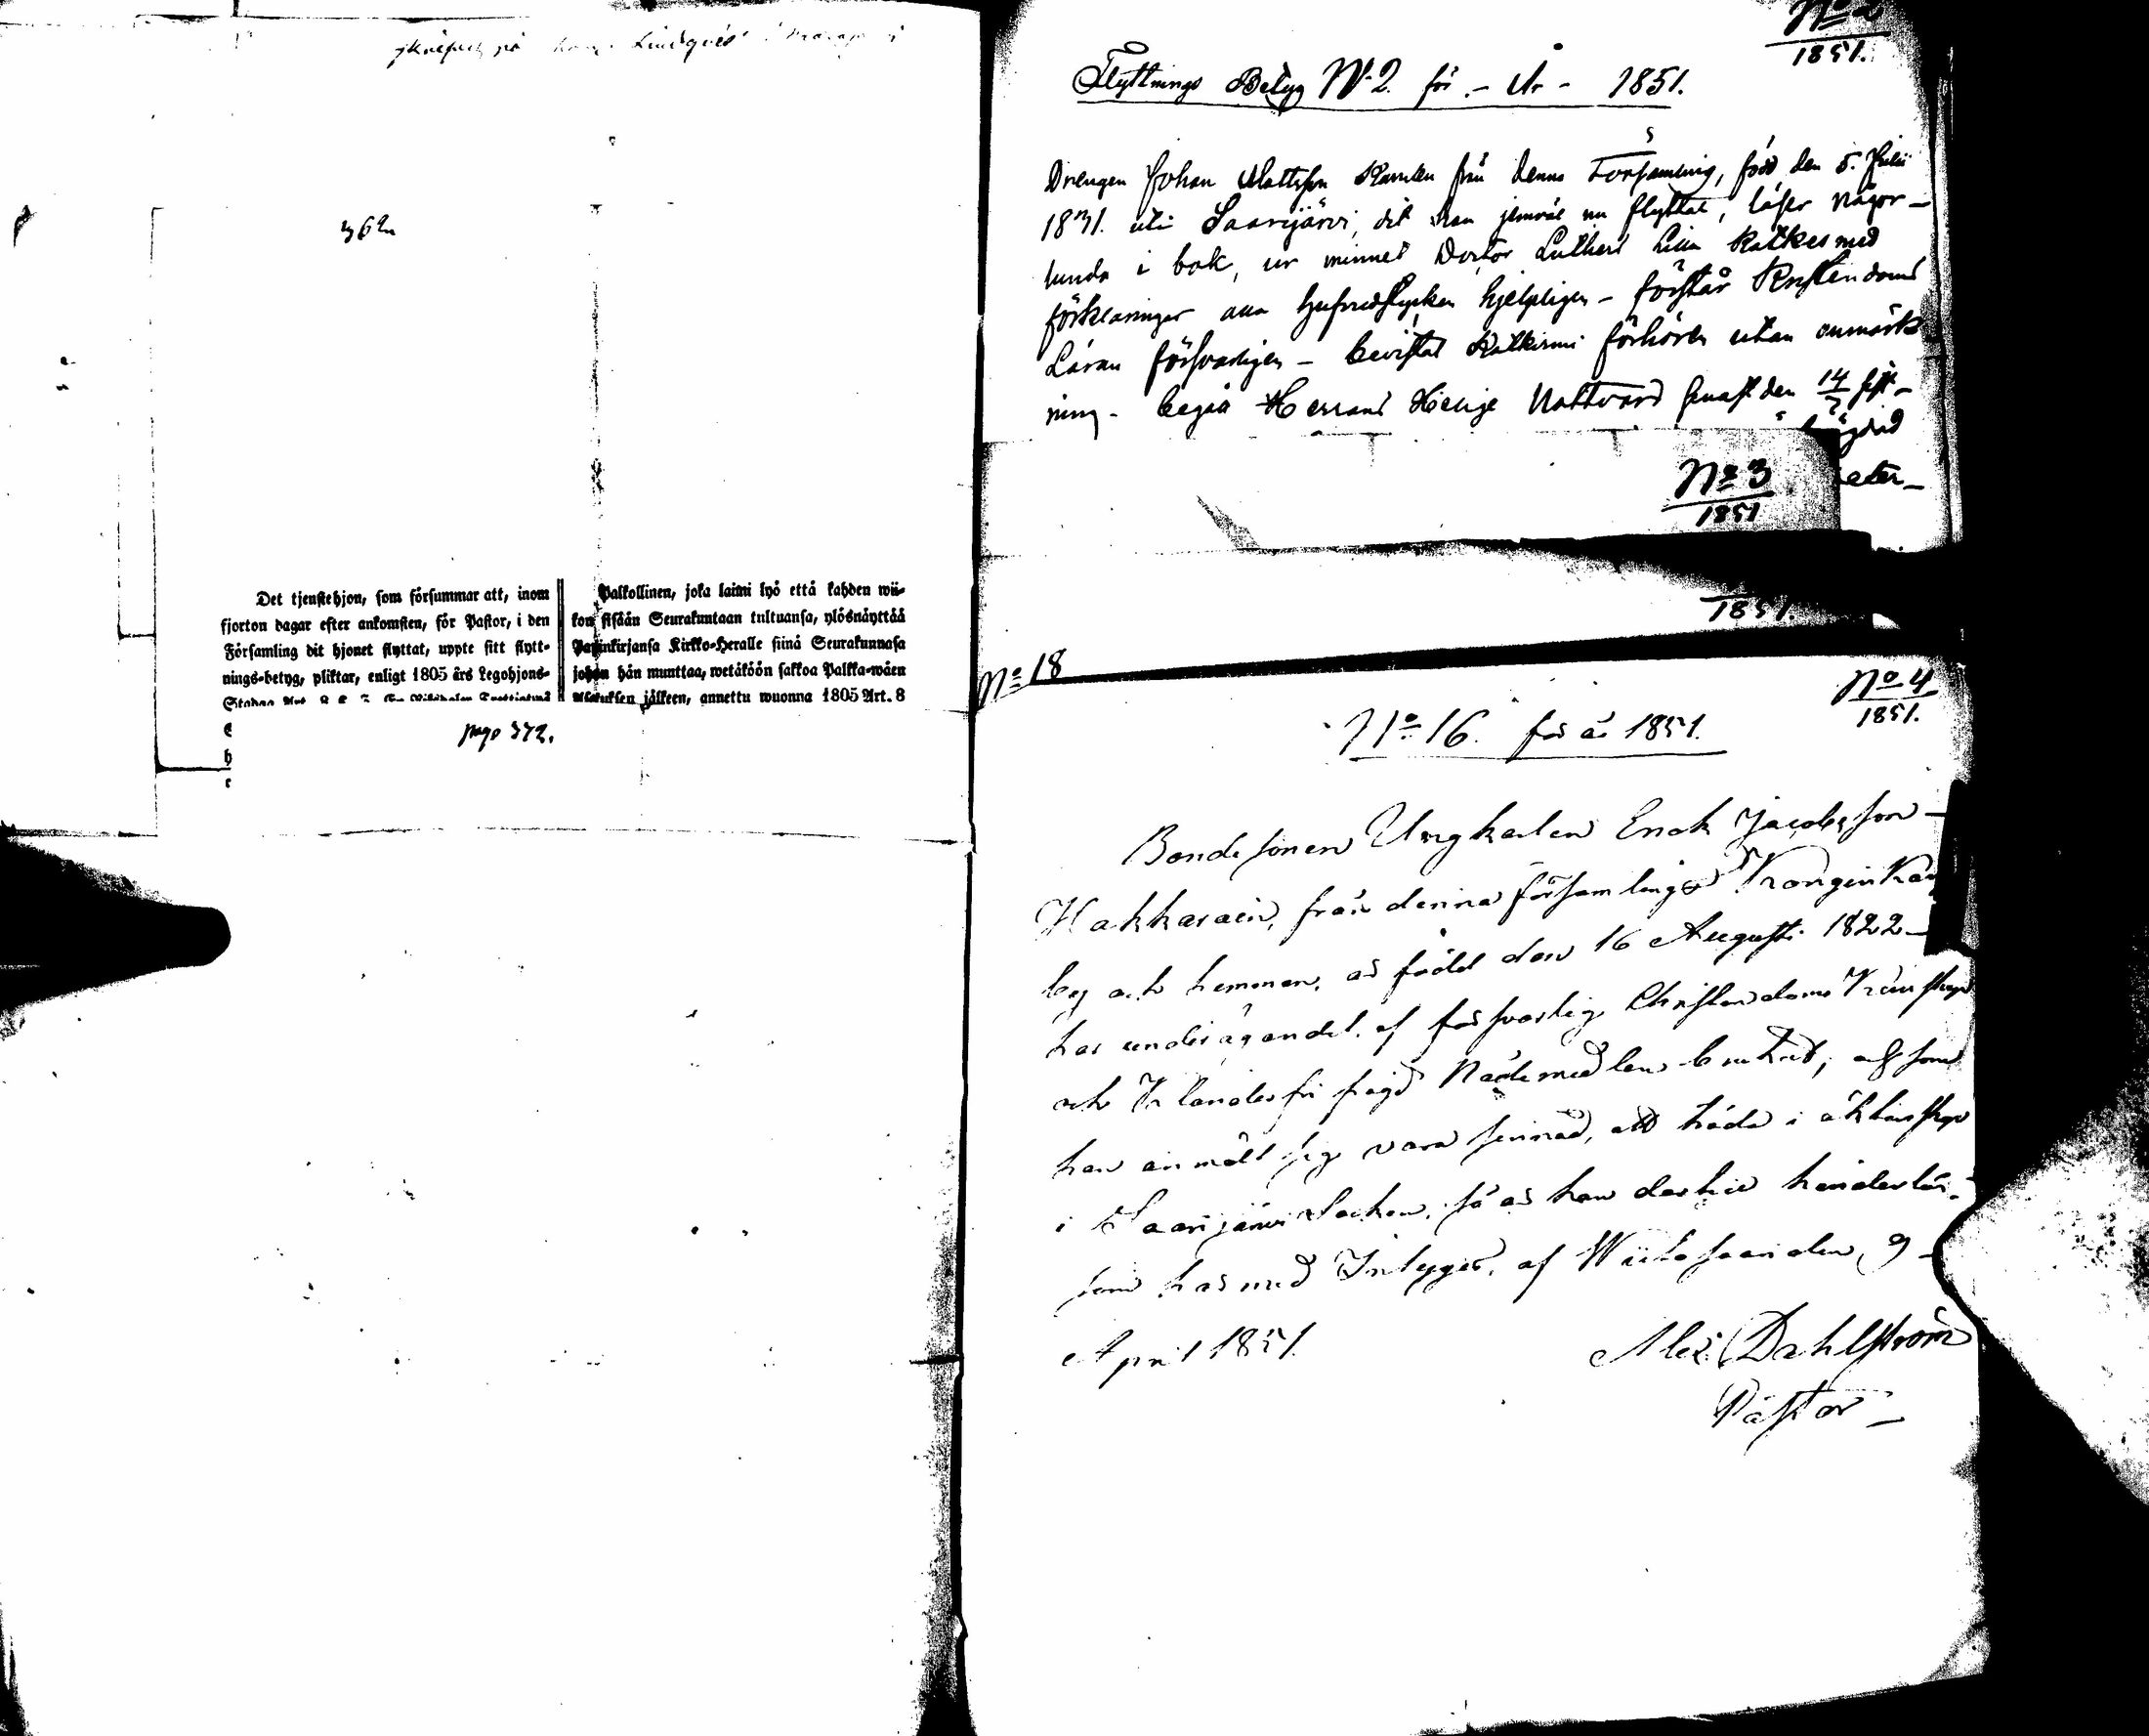 362
Det tjenstehjon, som försummar att, inom
fjorton dagar efter ankomsten, för Pastor, i den
Församling dit hjonet flyttat, uppte sitt flytt-
nings-betyg, pliktar, enligt 1805 års Legohjons-
Palkollinen, joka laimi lyö että kahden wii-
kon sisään Seurakuntaan tultuansa, ylösnäyttää
Kirkko-Heralle siinä Seurakunnasa
johon hän munttaa, wetäköön sakkoa Palkka-wäen
jälkeen, annettu wuonna 1805 Art. 8
page 372.
No 2
1851.
Flyttnings Betyg No 2. för - År - 1851.
Drengen Johan Mattsson från denna Församling, född den 5. Julii
1831. uti Saarijärvi, dit han jemväl nu flyttat, läser någor-
lunda i bok, ur minnet Doctor Lutheri Lilla Katkes med
förklaringar hjelpligen - förstår Kristendoms
Läran försvarligen - bevistat förhören utan anmärk
ning - begått Herrans Helige Nattvard senast den 14
No 3
1851
1851.
No 18
No 4
1851.
No 16. för år 1851.
Bondesonen Ungkarlen Erick Jacobsson
Hakkarain, från denna församlings Kongin Kan
by och hemman, är född den 16 Augusti 1822
har under ägandet af försvarlig Christendoms Kunskap
och Klanderfri frejd Nådemedlen brukat; och som
han anmält sig vara sinnad, att träda i äktenskap
i Saarijärvi Socken, så är han derhän hinderlös,
som har med Intygas, af Wiitasaari den 9
April 1851.
Alex. Dahlström
Pastor